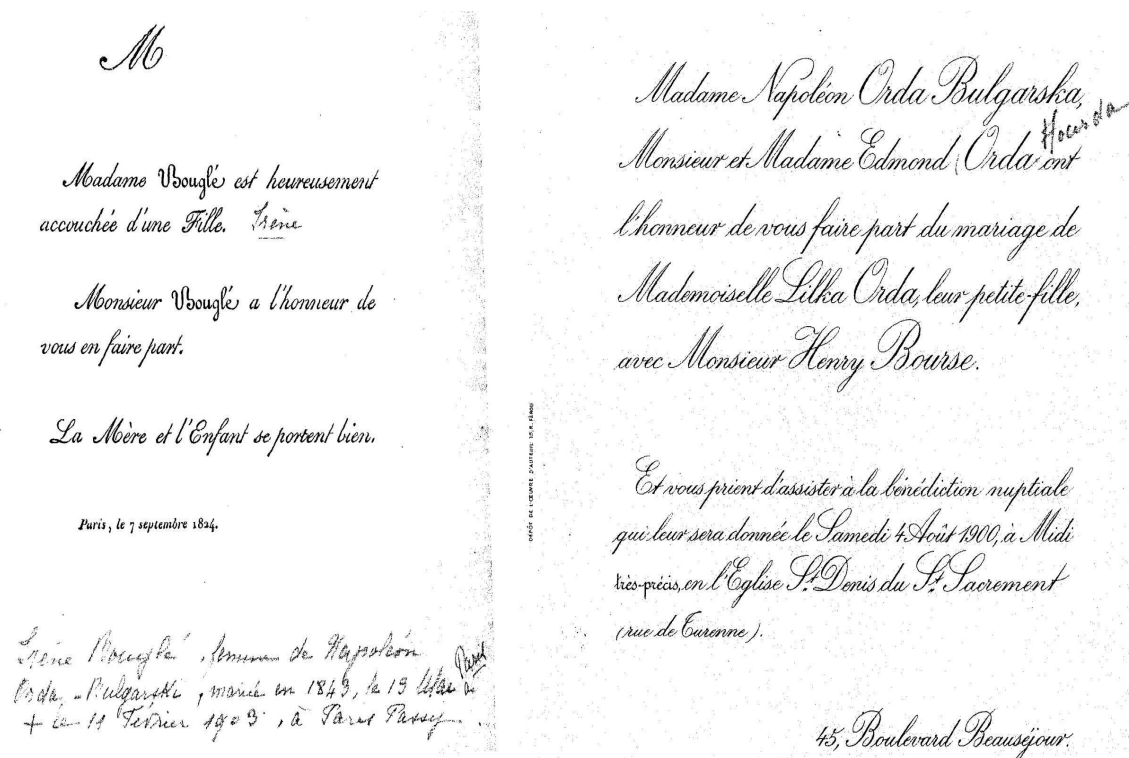 M
Madame Bouglé est heureusement
accouchée d'une Fille. Irène
Monsieur Bouglé a l'honneur de
vous en faire part.
La Mère et l'Enfant se portent bien.
Paris, le 7 septembre 1824.
Irène Bouglé, femme de Napoléon
Orda-Bulgarski, mariée en 1843, le 13 Mai à Paris
+ le 11 Février 1903, à Paris Passy.
DÉPÔT DE L'ŒUVRE D'AUTEUIL 15, R. FÉROU
Madame Napoléon Orda Bulgarska,
Monsieur et Madame Edmond (Orda Hourda ont
l'honneur de vous faire part du mariage de
Mademoiselle Lilka Orda, leur petite-fille,
avec Monsieur Henry Bourse.
Et vous prient d'assister à la bénédiction nuptiale
qui leur sera donnée le Samedi 4 Août 1900, à Midi
très-précis, en l'Eglise St. Denis du St. Sacrement
(rue de Turenne).
45, Boulevard Beauséjour.